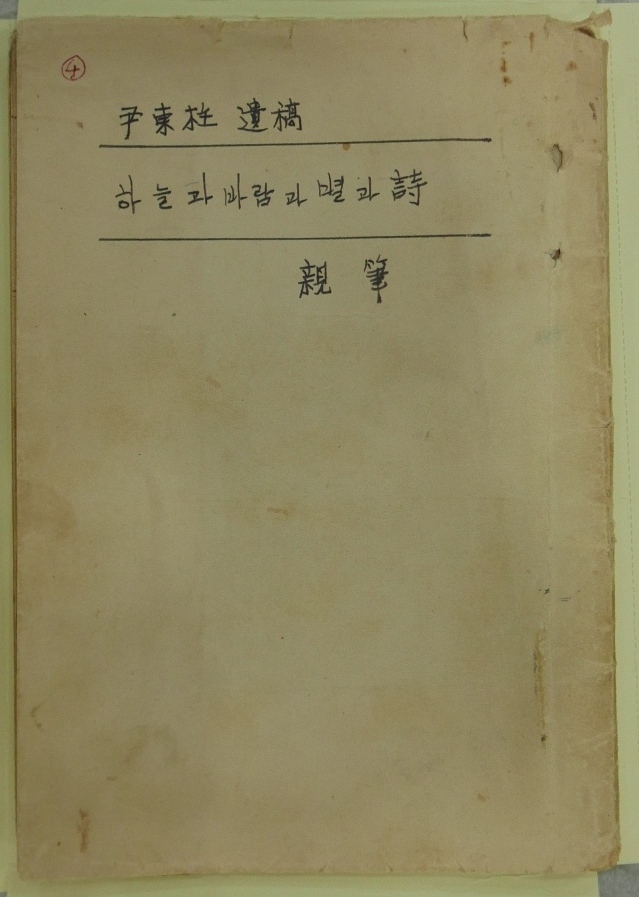 ④
尹東柱 遺稿
하늘과 바람과 별과 詩
親筆